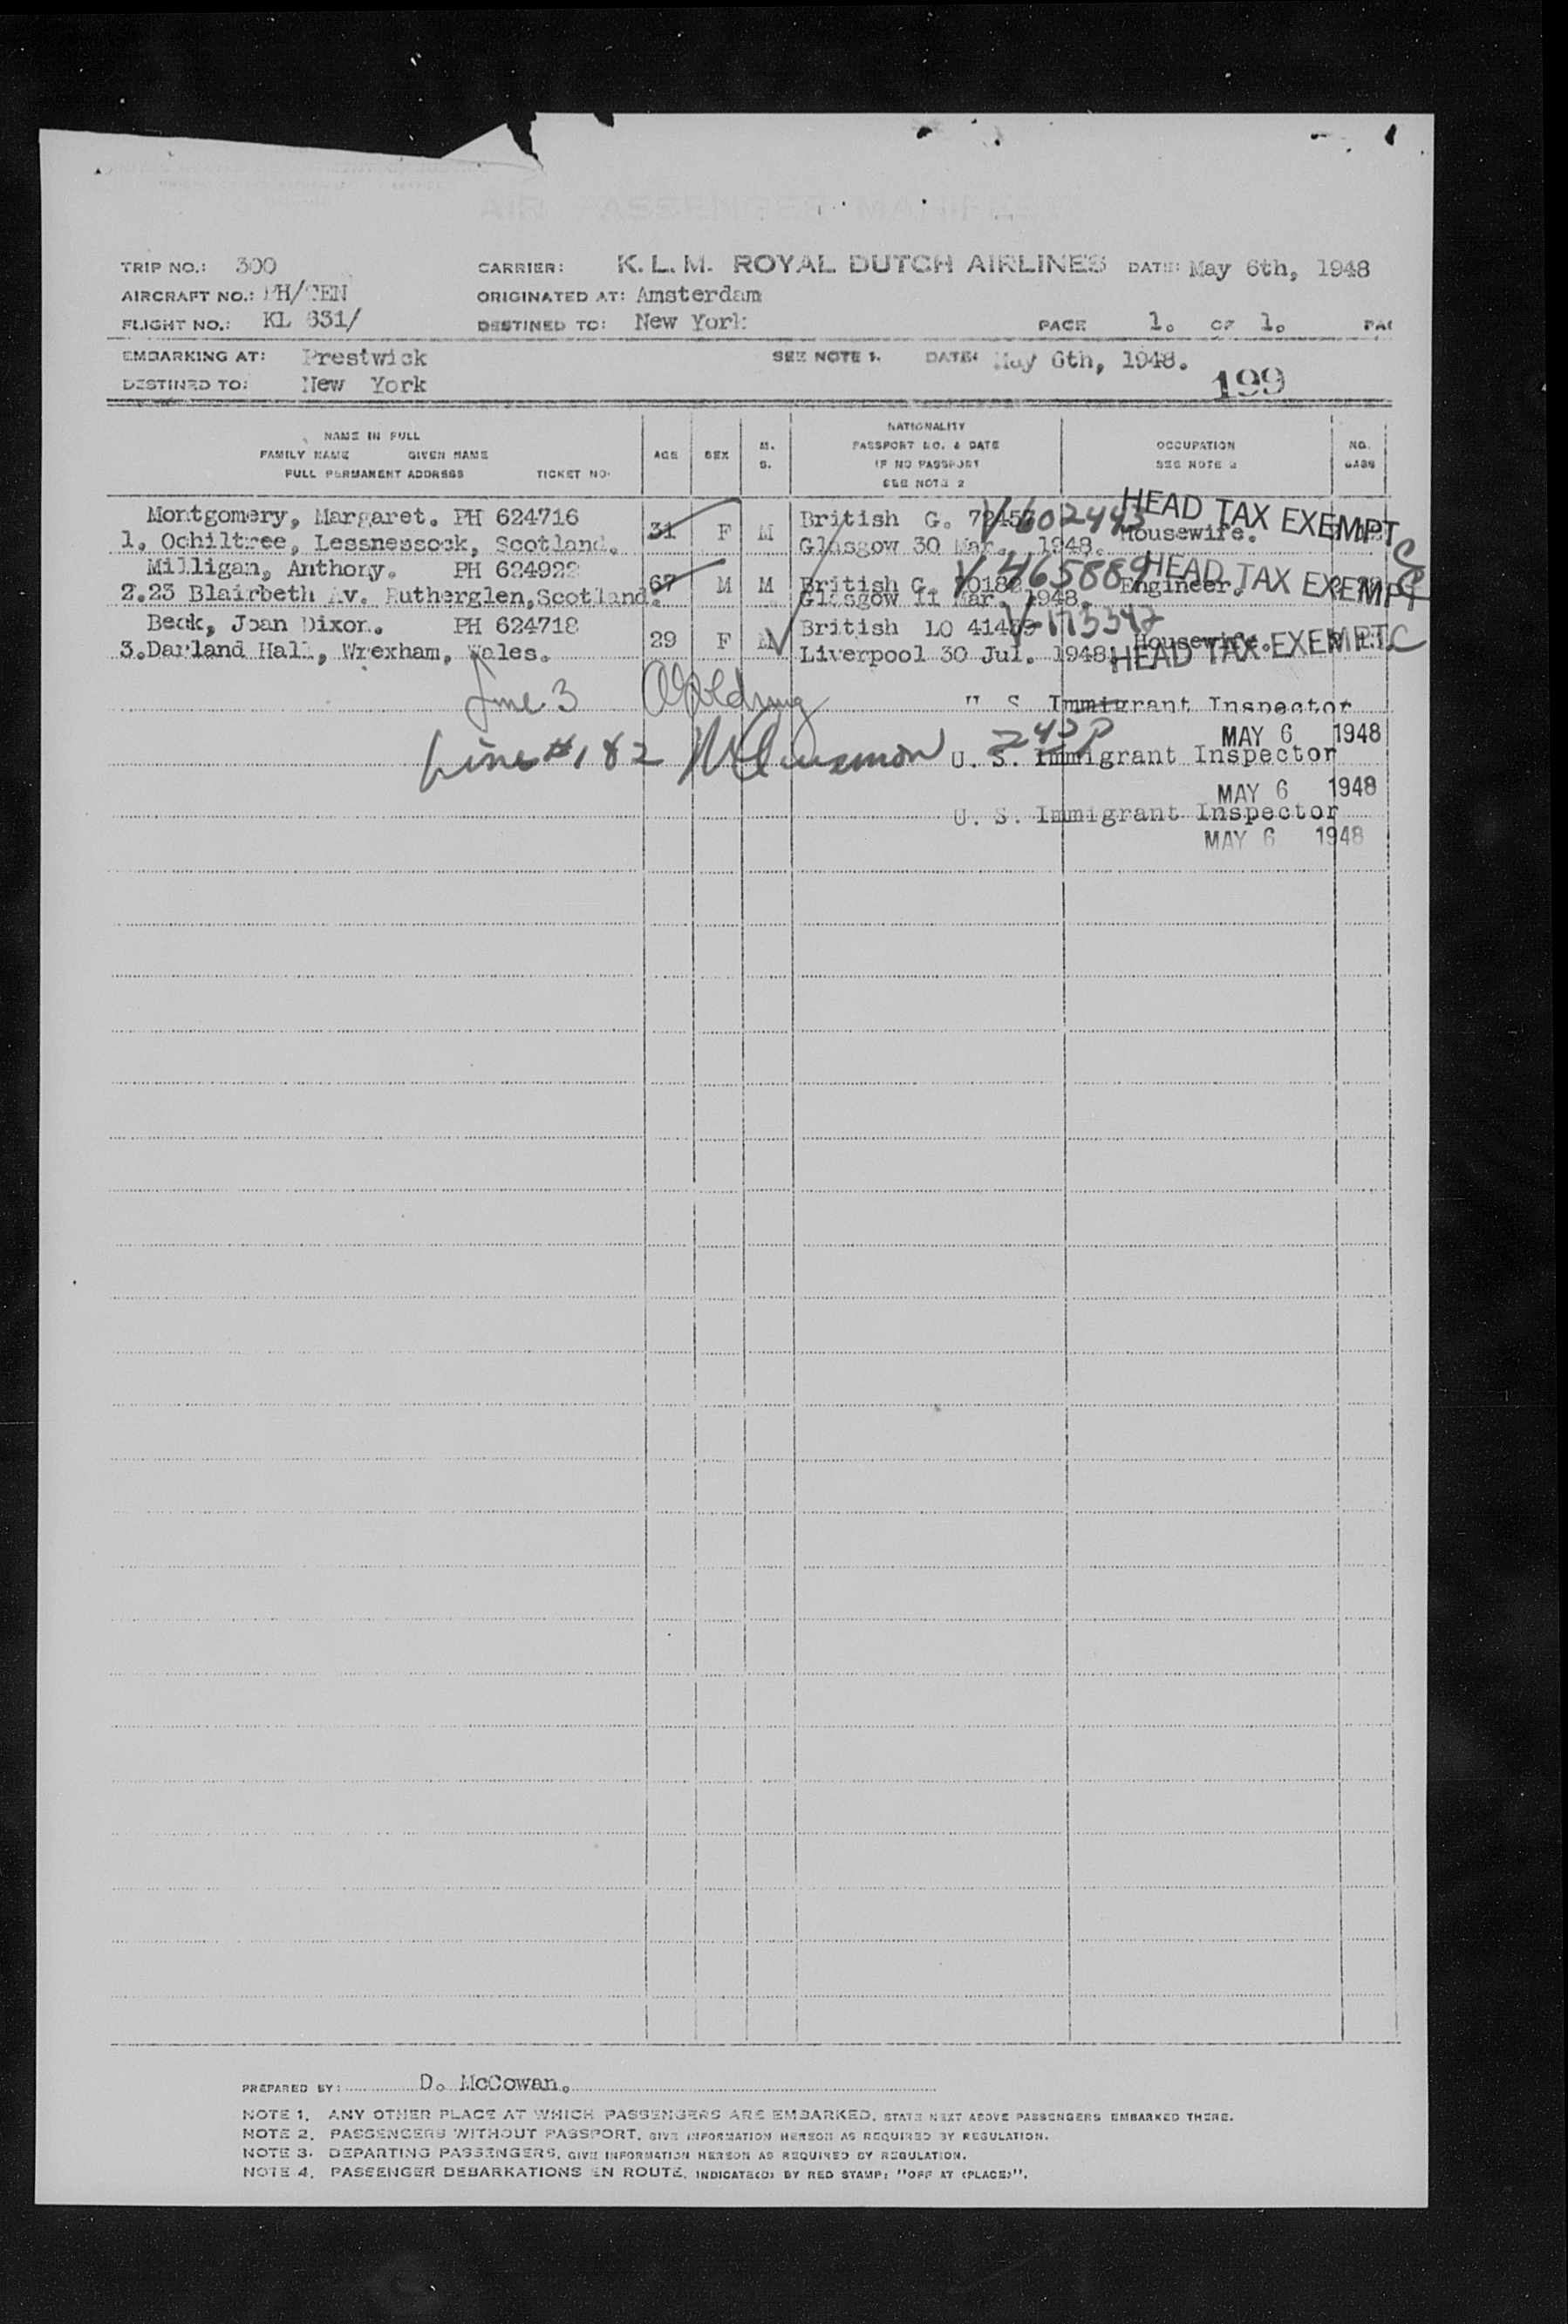 AIR PASSENGER MANIFEST
TRIP NO.: 300 CARRIER: K.L.M. ROYAL DUTCH AIRLINES DATE: May 6th, 1948
AIRCRAFT NO.: PH/TEN ORIGINATED AT: Amsterdam
FLIGHT NO.: KL 631/ DESTINED TO: New York PAGE 1. OF 1. PA
EMBARKING AT: Prestwick SEE NOTE 1. DATE: May 6th, 1948.
DESTINED TO: New York 199
NAME IN FULL
FAMILY NAME GIVEN NAME
FULL PERMANENT ADDRESS TICKET NO.
AGE
SEX
M.
S.
NATIONALITY
PASSPORT NO. & DATE
IF NO PASSPORT
SEE NOTE 2
OCCUPATION
SEE NOTE 2
NO.
BAGS
Montgomery, Margaret. PH 624716 31 F M British G. V 602443 HEAD TAX EXEMPT
1. Ochiltree, Lessnessock, Scotland. Glasgow 30 Mar. 1948. Housewife.
Milligan, Anthony. PH 624922 67 M M British G. V 465889 Engineer. HEAD TAX EXEMPT
2.23 Blairbeth Av. Rutherglen,Scotland. Glasgow 11 Mar. 1948.
Beck, Joan Dixon. PH 624718 29 F M British LO V-173342 Housewife.
3.Darland Hall, Wrexham, Wales. Liverpool 30 Jul. 1948. HEAD TAX EXEMPT C
Line 3 U. S. Immigrant Inspector
MAY 6 1948
Line #1 & 2 242P U. S. Immigrant Inspector
MAY 6 1948
U. S. Immigrant Inspector
MAY 6 1948
PREPARED BY: D. McCowan.
NOTE 1. ANY OTHER PLACE AT WHICH PASSENGERS ARE EMBARKED, STATE NEXT ABOVE PASSENGERS EMBARKED THERE.
NOTE 2. PASSENGERS WITHOUT PASSPORT, GIVE INFORMATION HEREON AS REQUIRED BY REGULATION.
NOTE 3. DEPARTING PASSENGERS, GIVE INFORMATION HEREON AS REQUIRED BY REGULATION.
NOTE 4. PASSENGER DEBARKATIONS EN ROUTE, INDICATE(D) BY RED STAMP: "OFF AT (PLACE)".